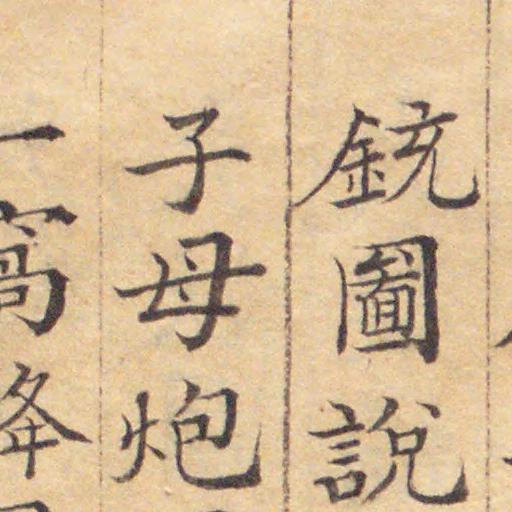 銃圖說
子母炮
一窩